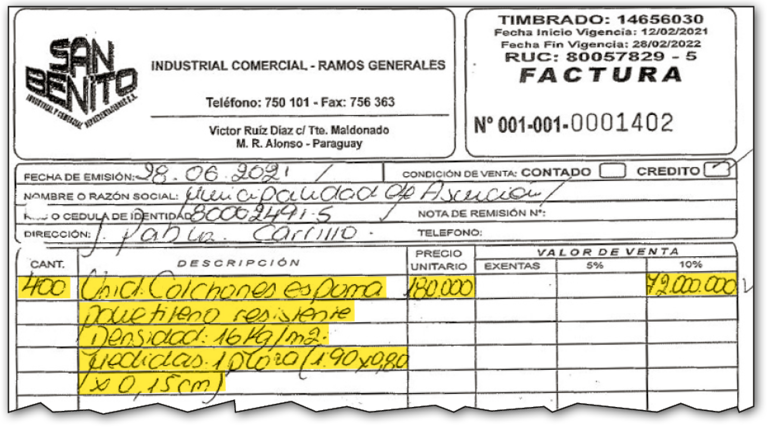 SAN
BENITO
INDUSTRIAL Y COMERCIAL REPRESENTACIONES S.A.
INDUSTRIAL COMERCIAL - RAMOS GENERALES
Teléfono: 750 101 - Fax: 756 363
Victor Ruíz Diaz c/ Tte. Maldonado
M. R. Alonso - Paraguay
TIMBRADO: 14656030
Fecha Inicio Vigencia: 12/02/2021
Fecha Fin Vigencia: 28/02/2022
RUC: 80057829 - 5
FACTURA
Nº 001-001-0001402
FECHA DE EMISIÓN: 28.06.2021 CONDICIÓN DE VENTA: CONTADO CREDITO
NOMBRE O RAZÓN SOCIAL: Municipalidad de Asuncion
O CEDULA DE IDENTIDAD 80002491.5 NOTA DE REMISIÓN Nº:
DIRECCIÓN: J. Pablo Carrillo. TELEFONO:
CANT. DESCRIPCIÓN PRECIO UNITARIO VALOR DE VENTA
EXENTAS 5% 10%
400 Unid. Colchones espuma 180.000 72.000.000
resistente
Densidad: 16Kg/m2.
Medidas: 1 plaza (1.90x0,80
x 0,15cm)